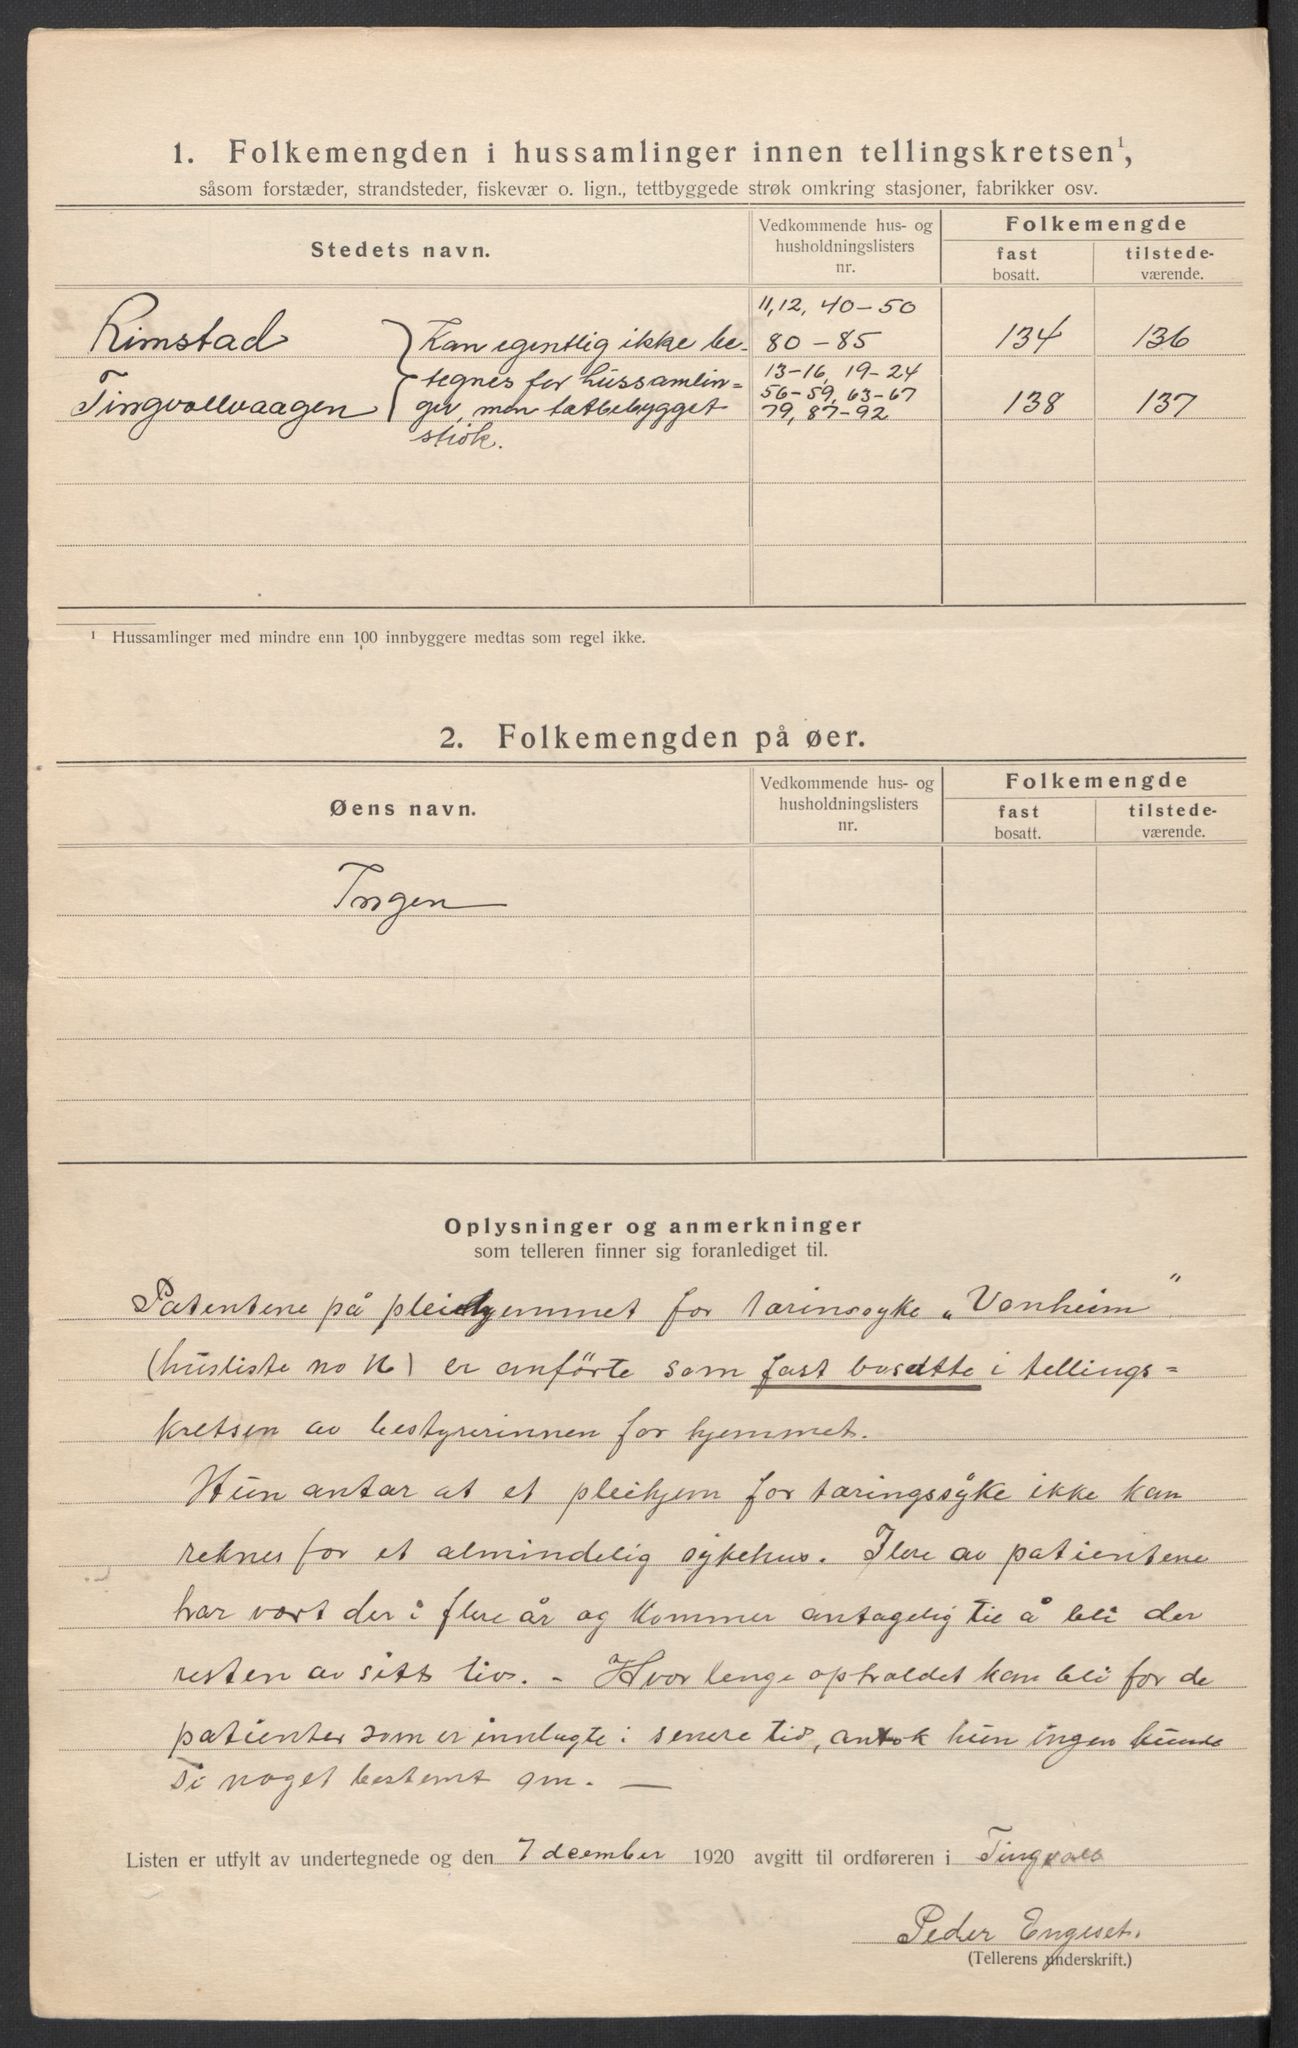 1. Folkemengden i hussamlinger innen tellingskretsen¹,
såsom forstæder, strandsteder, fiskevær o. lign., tettbyggede strøk omkring stasjoner, fabrikker osv.
Stedets navn.
Vedkommende hus- og husholdningslisters nr.
Folkemengde
fast bosatt.
tilstede-værende.
11, 12, 40-50
Rimstad Kan egentlig ikke be- 80-85 134 136
tegnes for hussamlin= 13-16, 19-24
Tingvollvaagen ger, men tætbebygget 56-59, 63-67 138 137
strøk. 79, 87-92
¹ Hussamlinger med mindre enn 100 innbyggere medtas som regel ikke.
2. Folkemengden på øer.
Øens navn.
Vedkommende hus- og husholdningslisters nr.
Folkemengde
fast bosatt.
tilstede-værende.
Ingen
Oplysninger og anmerkninger
som telleren finner sig foranlediget til.
Patentene på pleiehjemmet for tæringsyke „Vonheim"
(husliste no 16) er anførte som fast bosatte i tellings=
kretsen av bestyrerinnen for hjemmet.
Hun antar at et pleihjem for tæringssyke ikke kan
reknes for et almindelig sykehus. Flere av patientene
har vært der i flere år og kommer antagelig til å bli der
resten av sitt liv. - Hvor lenge opholdet kan bli for de
patienter som er innlagte i senere tid, antok hun ingen kunde
si noget bestemt om. —
Listen er utfylt av undertegnede og den 7 december 1920 avgitt til ordføreren i Tingvoll
Peder Engeset.
(Tellerens underskrift.)